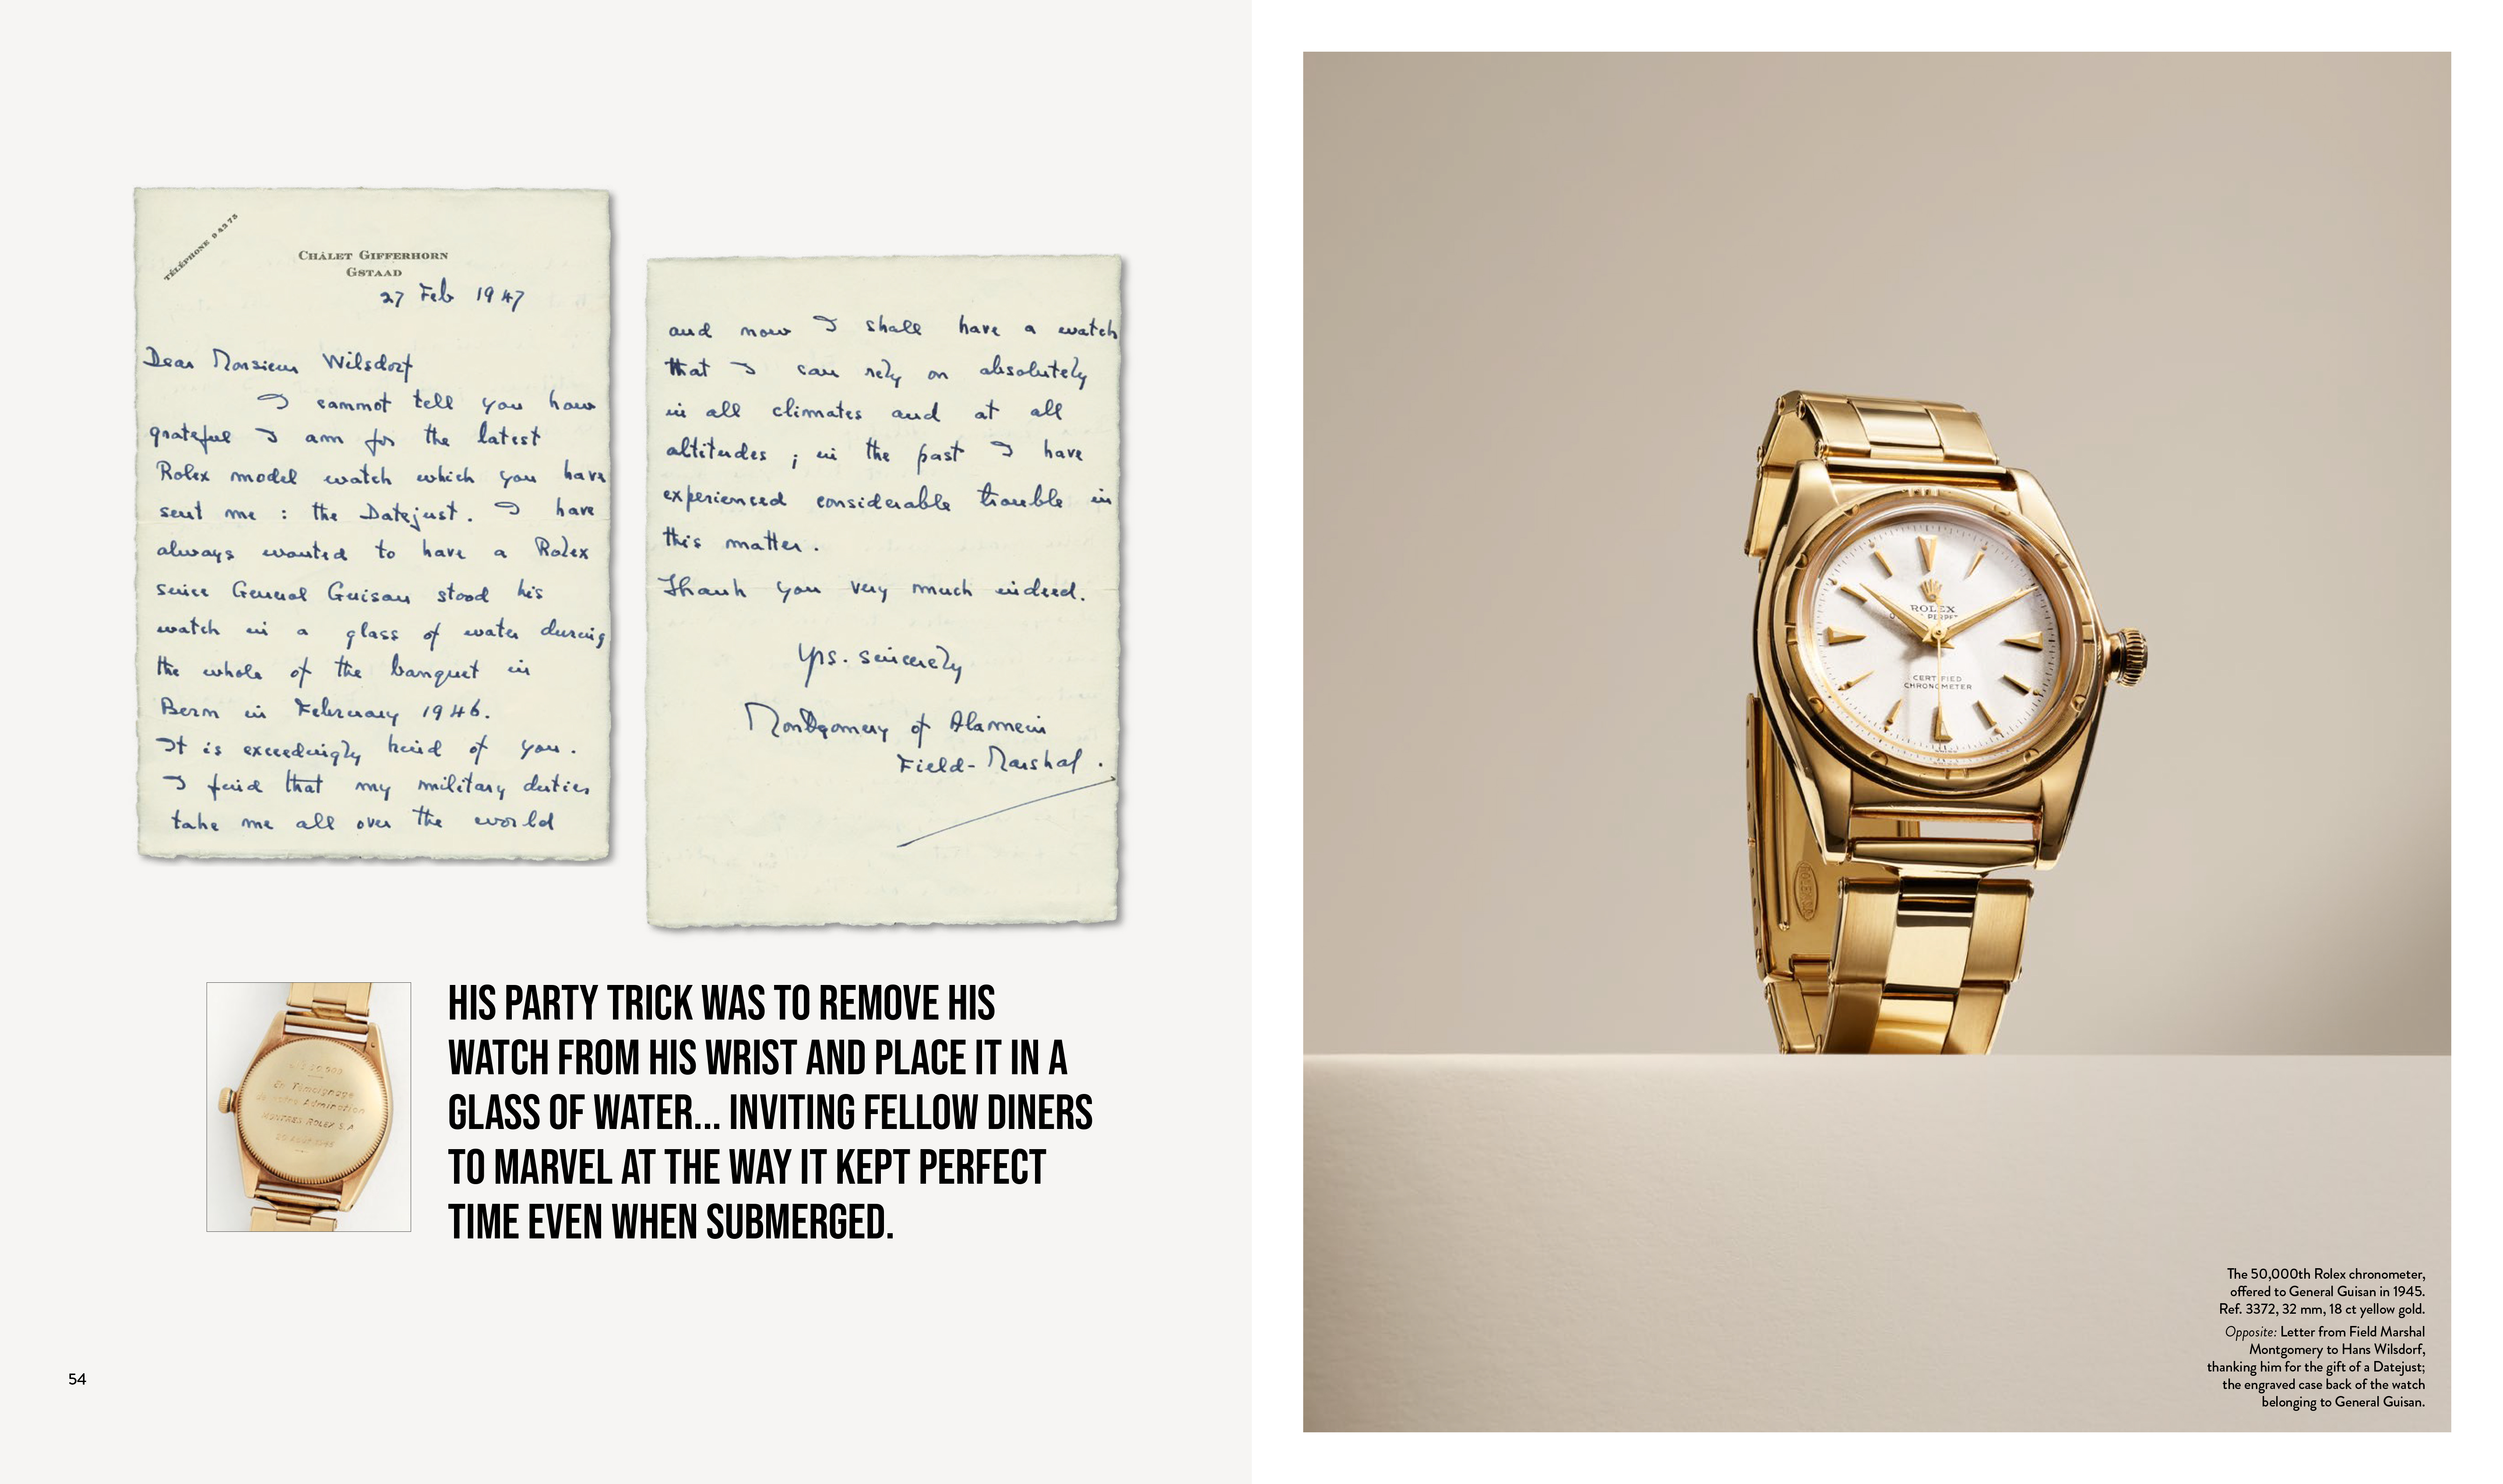 TÉLÉPHONE 9 42 75
CHÂLET GIFFERHORN
GSTAAD
27 Feb 1947
Dear Monsieur Wilsdorf
I cannot tell you how
grateful I am for the latest
Rolex model watch which you have
sent me : the Datejust. I have
always wanted to have a Rolex
since General Guisan stood his
watch in a glass of water during
the whole of the banquet in
Bern in February 1946.
It is exceedingly kind of you.
I find that my military duties
take me all over the world
and now I shall have a watch
that I can rely on absolutely
in all climates and at all
altitudes ; in the past I have
experienced considerable trouble in
this matter.
Thank you very much indeed.
Yrs. sincerely
Montgomery of Alamein
Field-Marshal.
En Témoignage
Admiration
MONTRES ROLEX S.A
HIS PARTY TRICK WAS TO REMOVE HIS
WATCH FROM HIS WRIST AND PLACE IT IN A
GLASS OF WATER... INVITING FELLOW DINERS
TO MARVEL AT THE WAY IT KEPT PERFECT
TIME EVEN WHEN SUBMERGED.
54
ROLEX
PERPET
CERTIFIED
CHRONOMETER
The 50,000th Rolex chronometer,
offered to General Guisan in 1945.
Ref. 3372, 32 mm, 18 ct yellow gold.
Opposite: Letter from Field Marshal
Montgomery to Hans Wilsdorf,
thanking him for the gift of a Datejust;
the engraved case back of the watch
belonging to General Guisan.